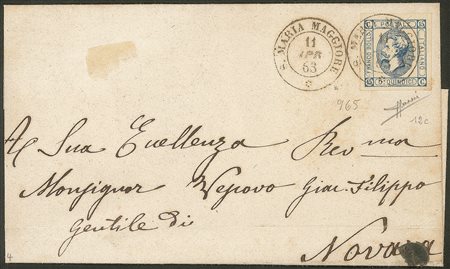 S. MARIA MAGGIORE
11
APR
63
FRANCO BOLLO POSTALE ITALIANO
C. QUINDICI
965
12c
A Sua Eccellenza Rev ma
Monsignor Vescovo Giac. Filippo
Gentile di
Novara
4